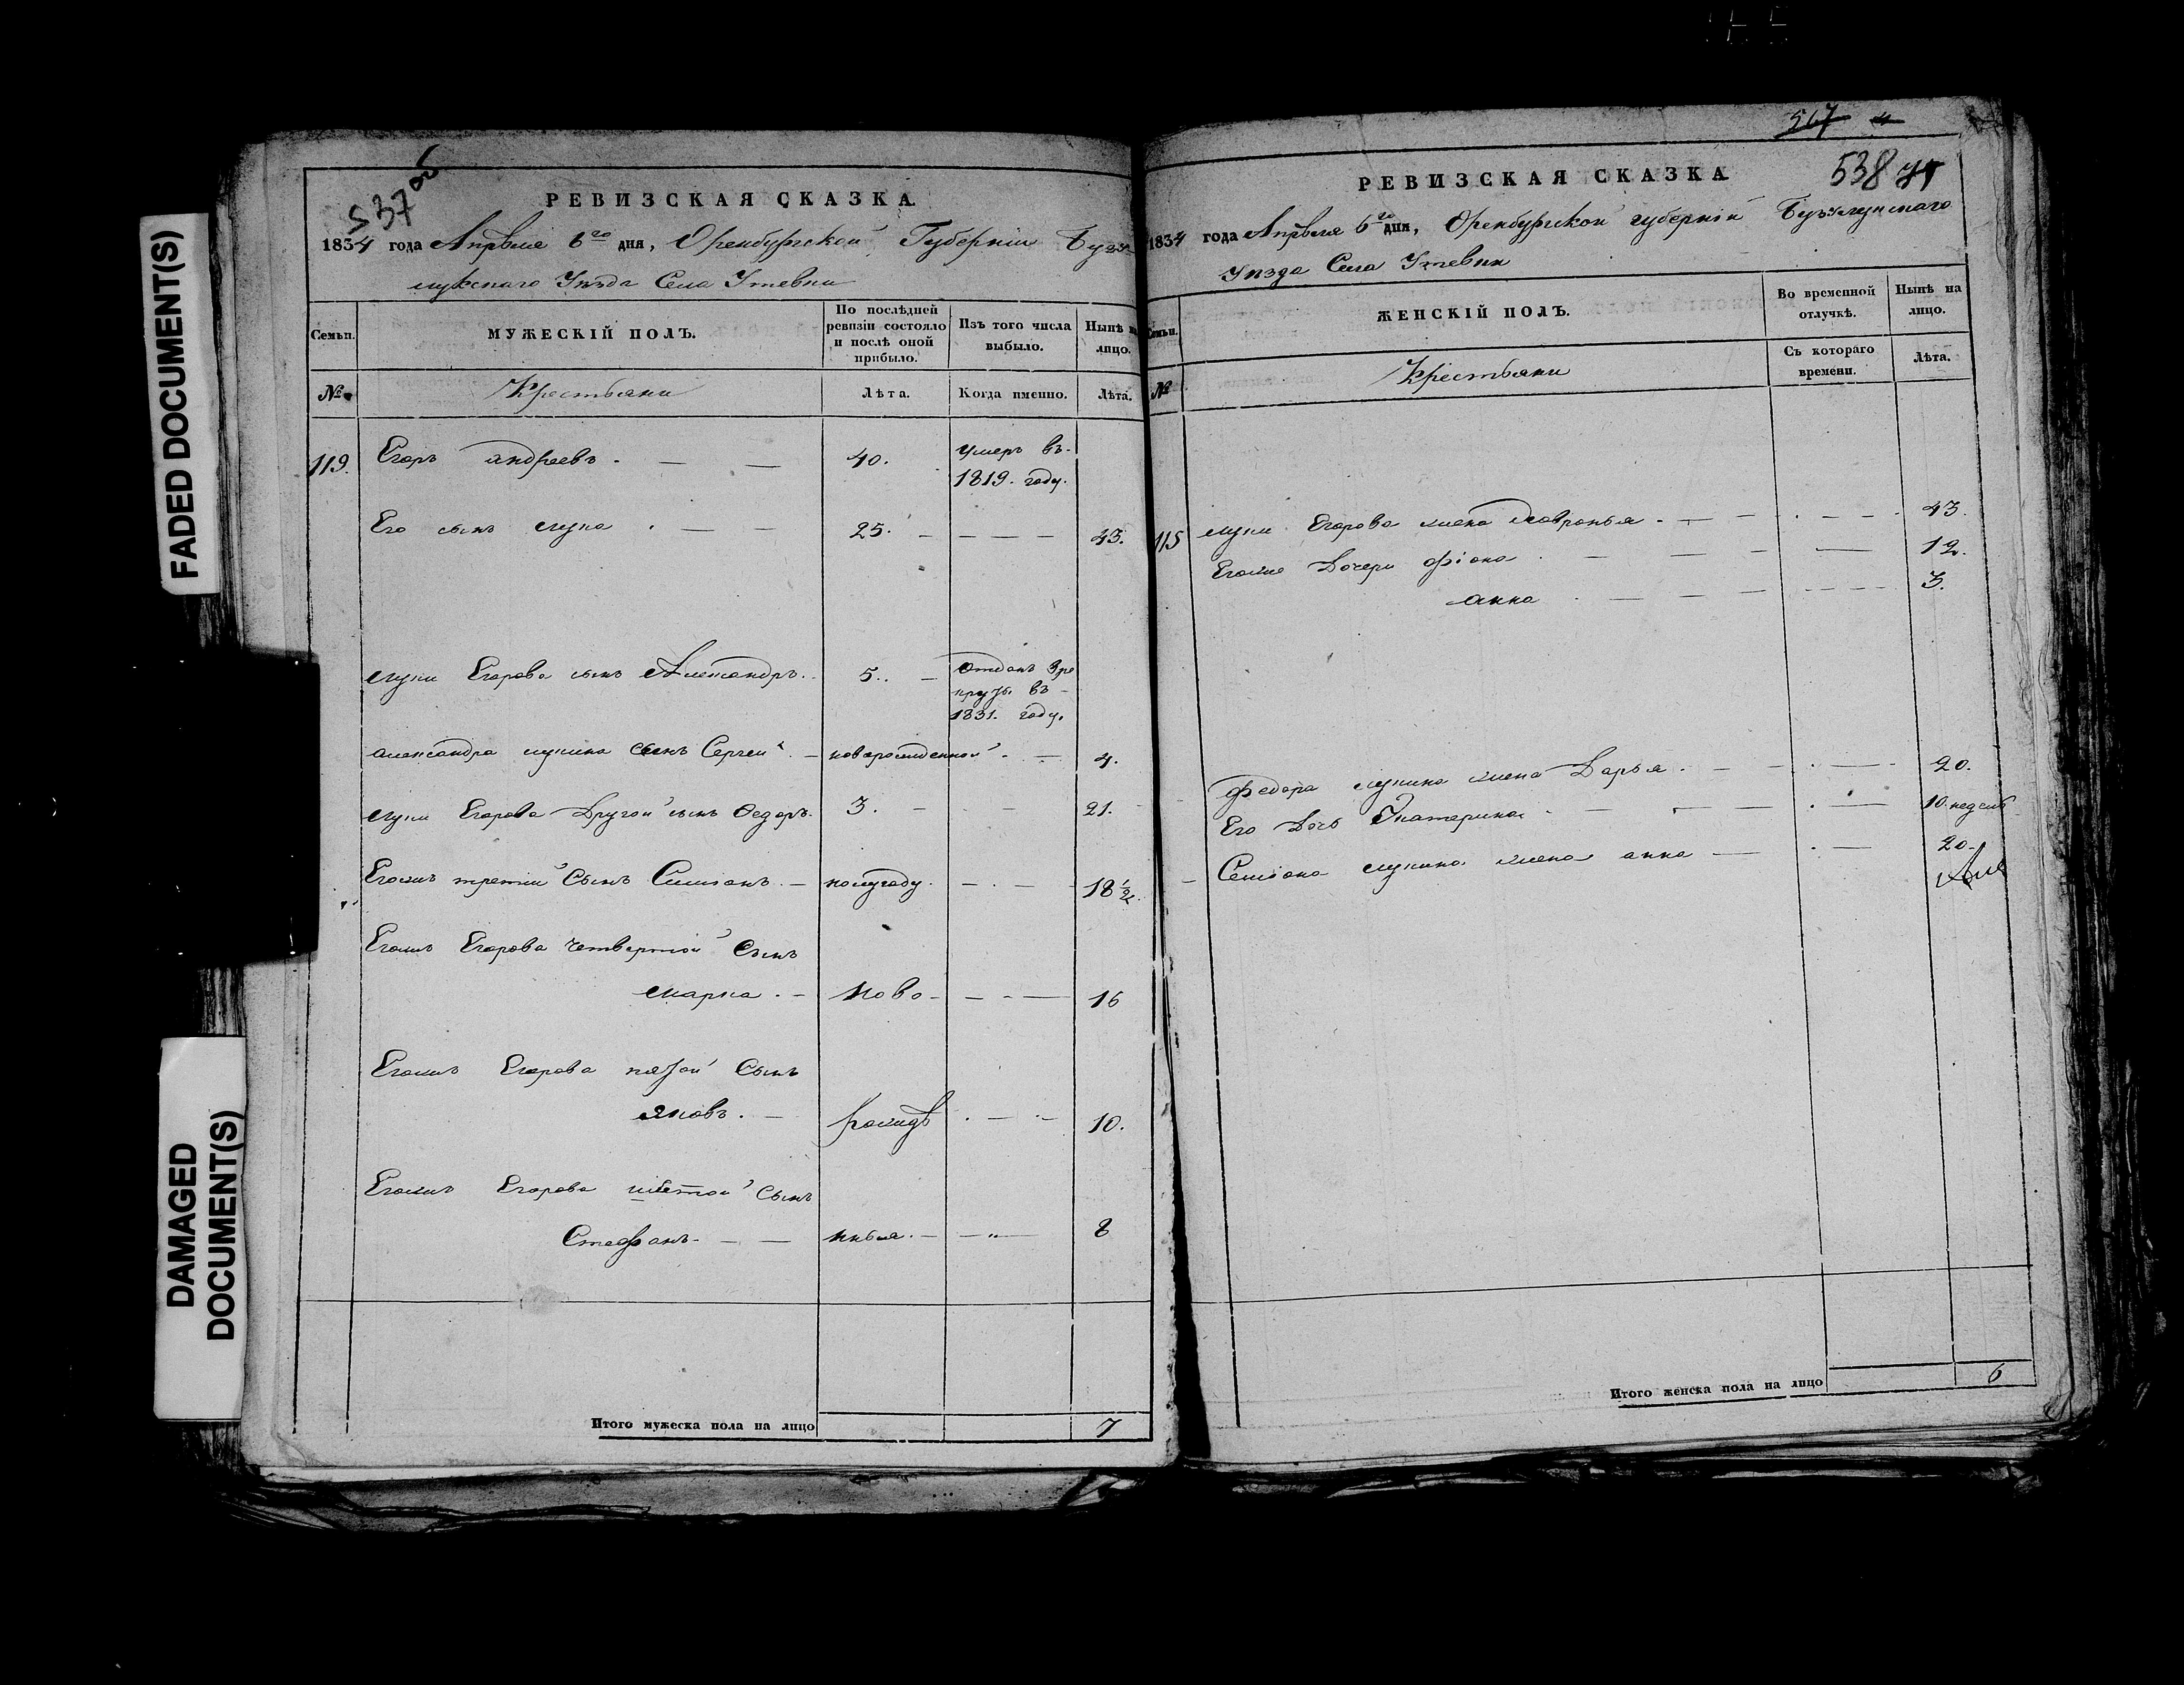 FADED DOCUMENT(S)
DAMAGED
DOCUMENT(S)
537 об
РЕВИЗСКАЯ СКАЗКА
1834 года Апреля 6го дня, Оренбургской Губернии Бузу
лукскаго Уезда Села Утевки
Семьи.
МУЖЕСКІЙ ПОЛЪ.
По послѣдней
ревизіи состояло
и послѣ оной
прибыло.
Изъ того числа
выбыло.
Нынѣ на
лицо.
№
Крестьяни
Лѣта.
Когда именно.
Лѣта.
119. Егоръ андреевъ. 40. умеръ въ
1819. году.
Его сынъ лука 25. 43.
луки Егорова сынъ Александръ. 5. отданъ в ре
круты въ
1831. году.
александра лукина сынъ Сергей новорожденной 4.
луки Егорова Другой сынъ Федоръ. 3. 21.
Егожъ третий Сынъ Симионъ. полугоду. 18 1/2
Егожъ Егорова четвертой Сынъ
марка. Ново 16
Егожъ Егорова пятой Сынъ
яковъ. рожде 10.
Егожъ Егорова шестой Сынъ
Стефанъ нныя. 8
Итого мужеска пола на лицо 7
567
РЕВИЗСКАЯ СКАЗКА
538
1834 года Апреля 6го дня, Оренбургской губерніи Бузулукскаго
Уезда Села Утевки
Семьи.
ЖЕНСКІЙ ПОЛЪ.
Во временной
отлучкѣ.
Нынѣ на
лицо.
№
Крестьяни
Съ котораго
времени.
Лѣта.
115 луки Егорова жена Хавронья 43.
Егоже Дочери фіона 12.
анна 3.
федора лукина жена Дарья 20.
Его Дочь Екатерина 10 недель
Семиона лукина жена анна 20.
Итого женска пола на лицо 6